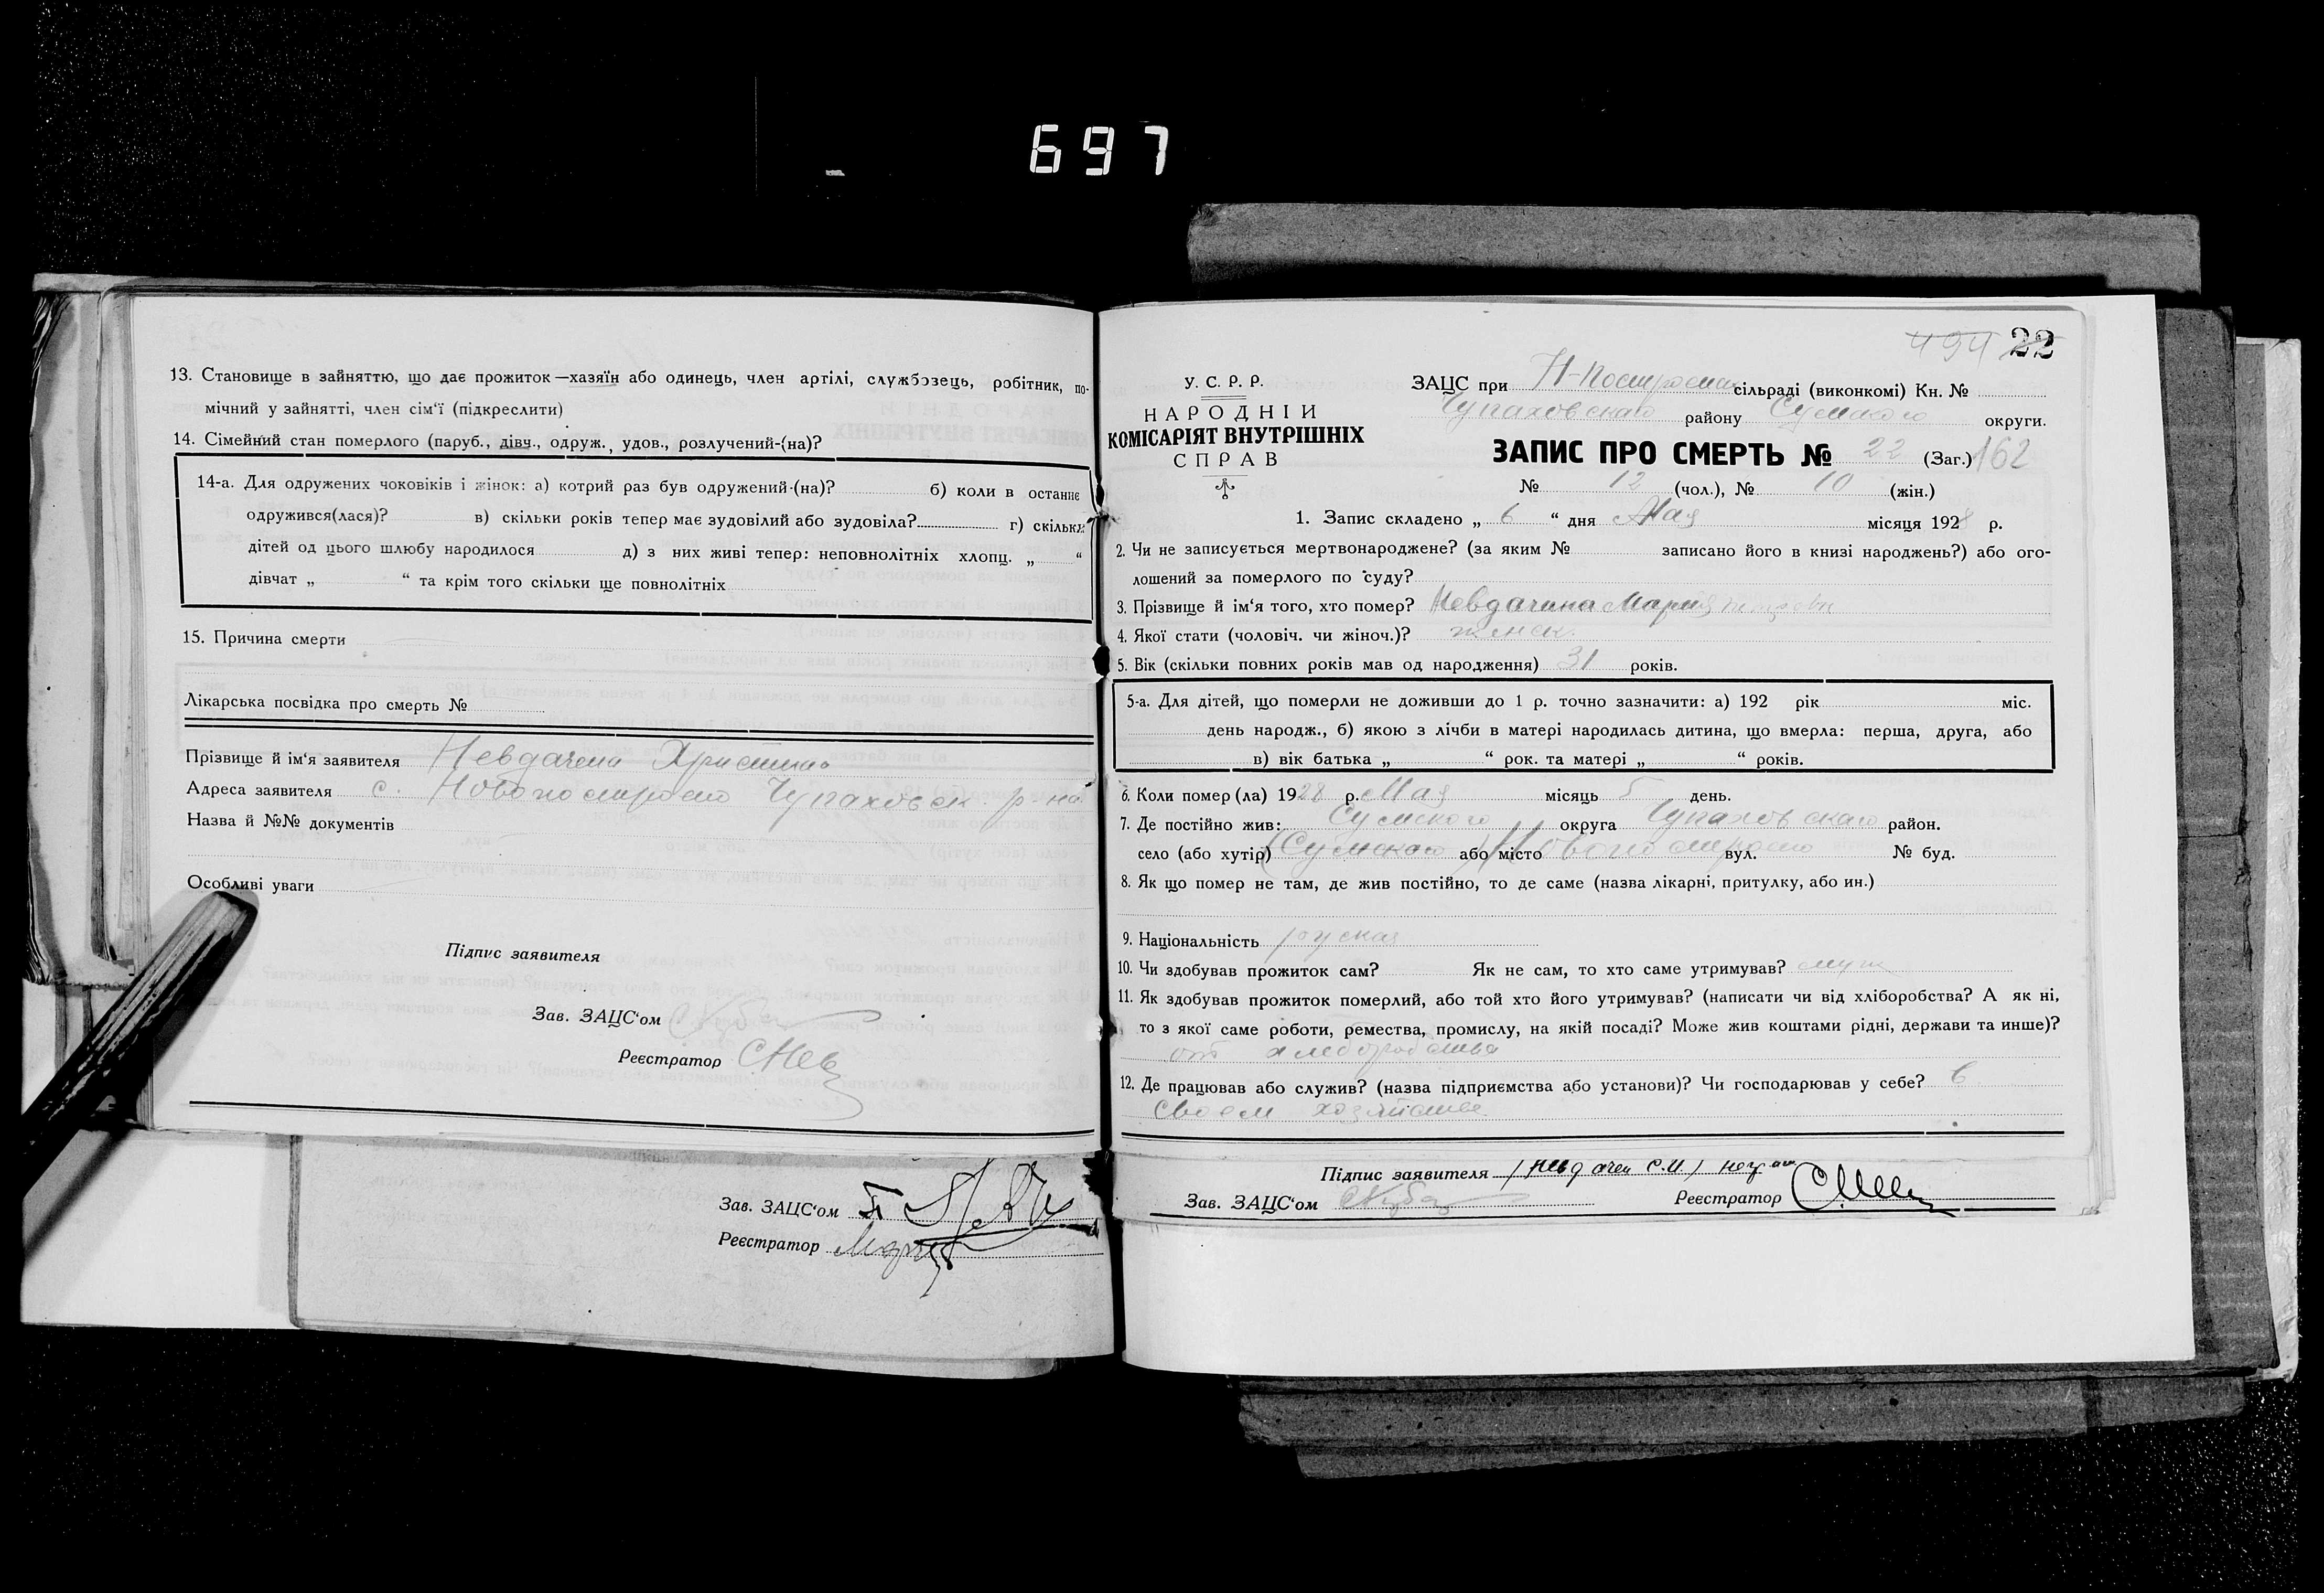 697
13. Становище в зайняттю, що дає прожиток—хазяїн або одинець, член артілі, службовець, робітник, по-
мічний у зайнятті, член сім'ї (підкреслити)
14. Сімейний стан померлого (паруб., дівч., одруж., удов., розлучений-(на)?
14-а. Для одружених чоковіків і жінок: а) котрий раз був одружений-(на)? б) коли в останнє
одружився(лася)? в) скільки років тепер має зудовілий або зудовіла? г) скільки
дітей од цього шлюбу народилося д) з них живі тепер: неповнолітніх хлопц. „ “
дівчат „ “ та крім того скільки ще повнолітніх
15. Причина смерти
Лікарська посвідка про смерть №
Прізвище й ім'я заявителя Невдачена
Адреса заявителя с. Чупаховск. р-на
Назва й №№ документів
Особливі уваги
Підпис заявителя
Зав. ЗАЦС'ом
Реєстратор
Зав. ЗАЦС'ом
Реєстратор
494 22
У. С. Р. Р.
НАРОДНІЙ
КОМІСАРІЯТ ВНУТРІШНІХ
СПРАВ
ЗАЦС при сільраді (виконкомі) Кн. №
Чупаховскаго району Сумского округи.
ЗАПИС ПРО СМЕРТЬ № 22 (Заг.) 162
№ 12 (чол.), № 10 (жін.)
1. Запис складено „ 6 “ дня Мая місяця 1928 р.
2. Чи не записується мертвонароджене? (за яким № записано його в книзі народжень?) або ого-
лошений за померлого по суду?
3. Прізвище й ім'я того, хто помер? Невдачина Мария
4. Якої стати (чоловіч. чи жіноч.)? женск.
5. Вік (скільки повних років мав од народження) 31 років.
5-а. Для дітей, що померли не доживши до 1 р. точно зазначити: а) 192 рік міс.
день народж., б) якою з лічби в матері народилась дитина, що вмерла: перша, друга, або
в) вік батька „ “ рок. та матері „ “ років.
6. Коли помер (ла) 1928 р. Мая місяць 5 день.
7. Де постійно жив: Сумского округа Чупаховскаго район.
село (або хутір) (Сумского) або місто вул. № буд.
8. Як що помер не там, де жив постійно, то де саме (назва лікарні, притулку, або ин.)
9. Національність руская
10. Чи здобував прожиток сам? Як не сам, то хто саме утримував? муж
11. Як здобував прожиток померлий, або той хто його утримував? (написати чи від хліборобства? А як ні,
то з якої саме роботи, ремества, промислу, на якій посаді? Може жив коштами рідні, держави та инше)?
от хлеборобства
12. Де працював або служив? (назва підприємства або установи)? Чи господарював у себе? в
своем хозяйстве
Підпис заявителя (Невдачен С.И.)
Зав. ЗАЦС'ом Реєстратор